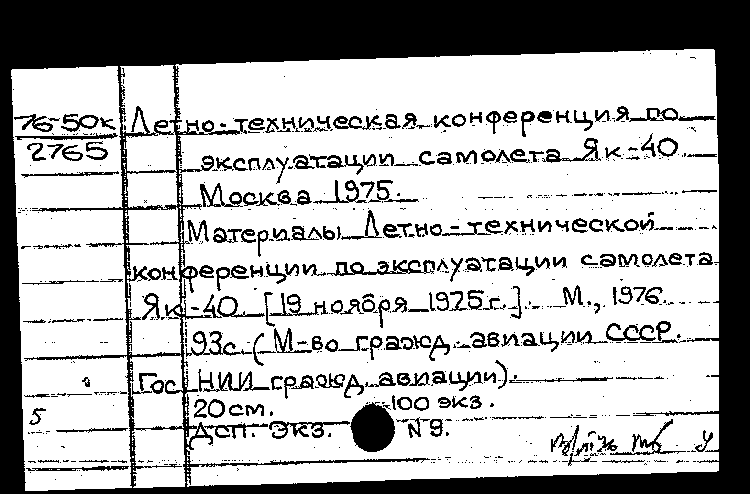 76-50к Летно-техническая конференция по
2765 эксплуатации самолета Як-40
Москва 1975.
Материалы Летно-технической
конференции по эксплуатации самолета
Як-40. [19 ноября 1975 г.]. М., 1976.
93с. (М-во гражд. авиации СССР.
Гос НИИ гражд. авиации).
20 см. 100 экз.
5
Дсп. Экз. N 9.